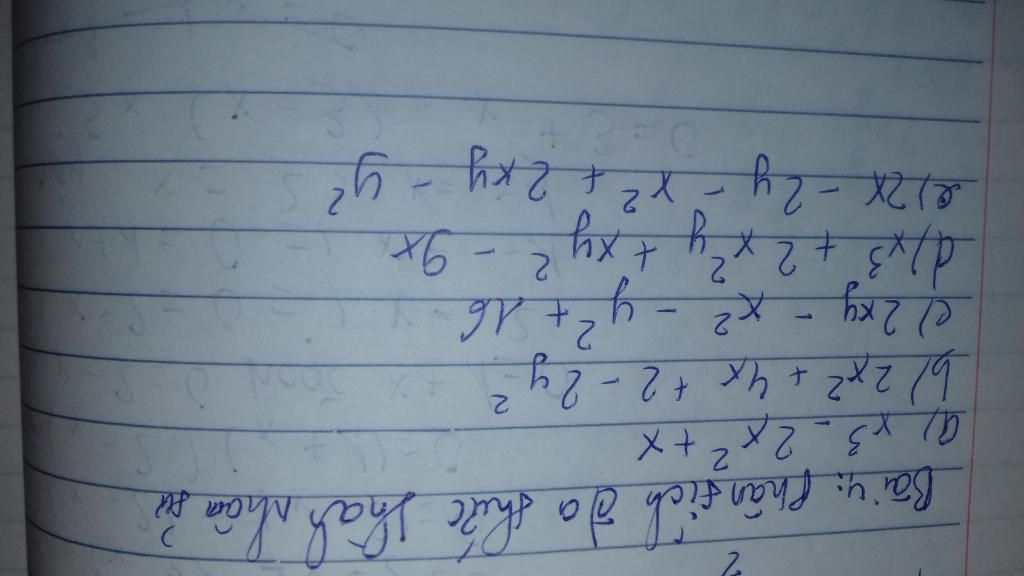 Bài 4: Phân tích đa thức thành nhân tử
a) x³ - 2x² + x
b) 2x² + 4x + 2 - 2y²
c) 2xy - x² - y² + 16
d) x³ + 2x²y + xy² - 9x
e) 2x - 2y - x² + 2xy - y²